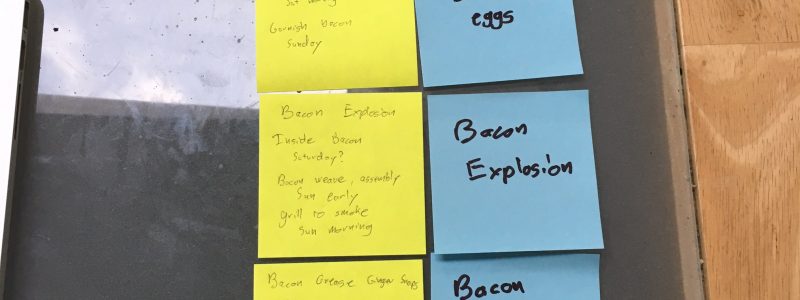 Garnish Bacon
Sunday
eggs
Bacon Explosion
Inside Bacon
Saturday?
Bacon weave, assembly
Sun early
grill to smoke
Sun morning
Bacon
Explosion
Bacon Grease Ginger Snaps
Bacon